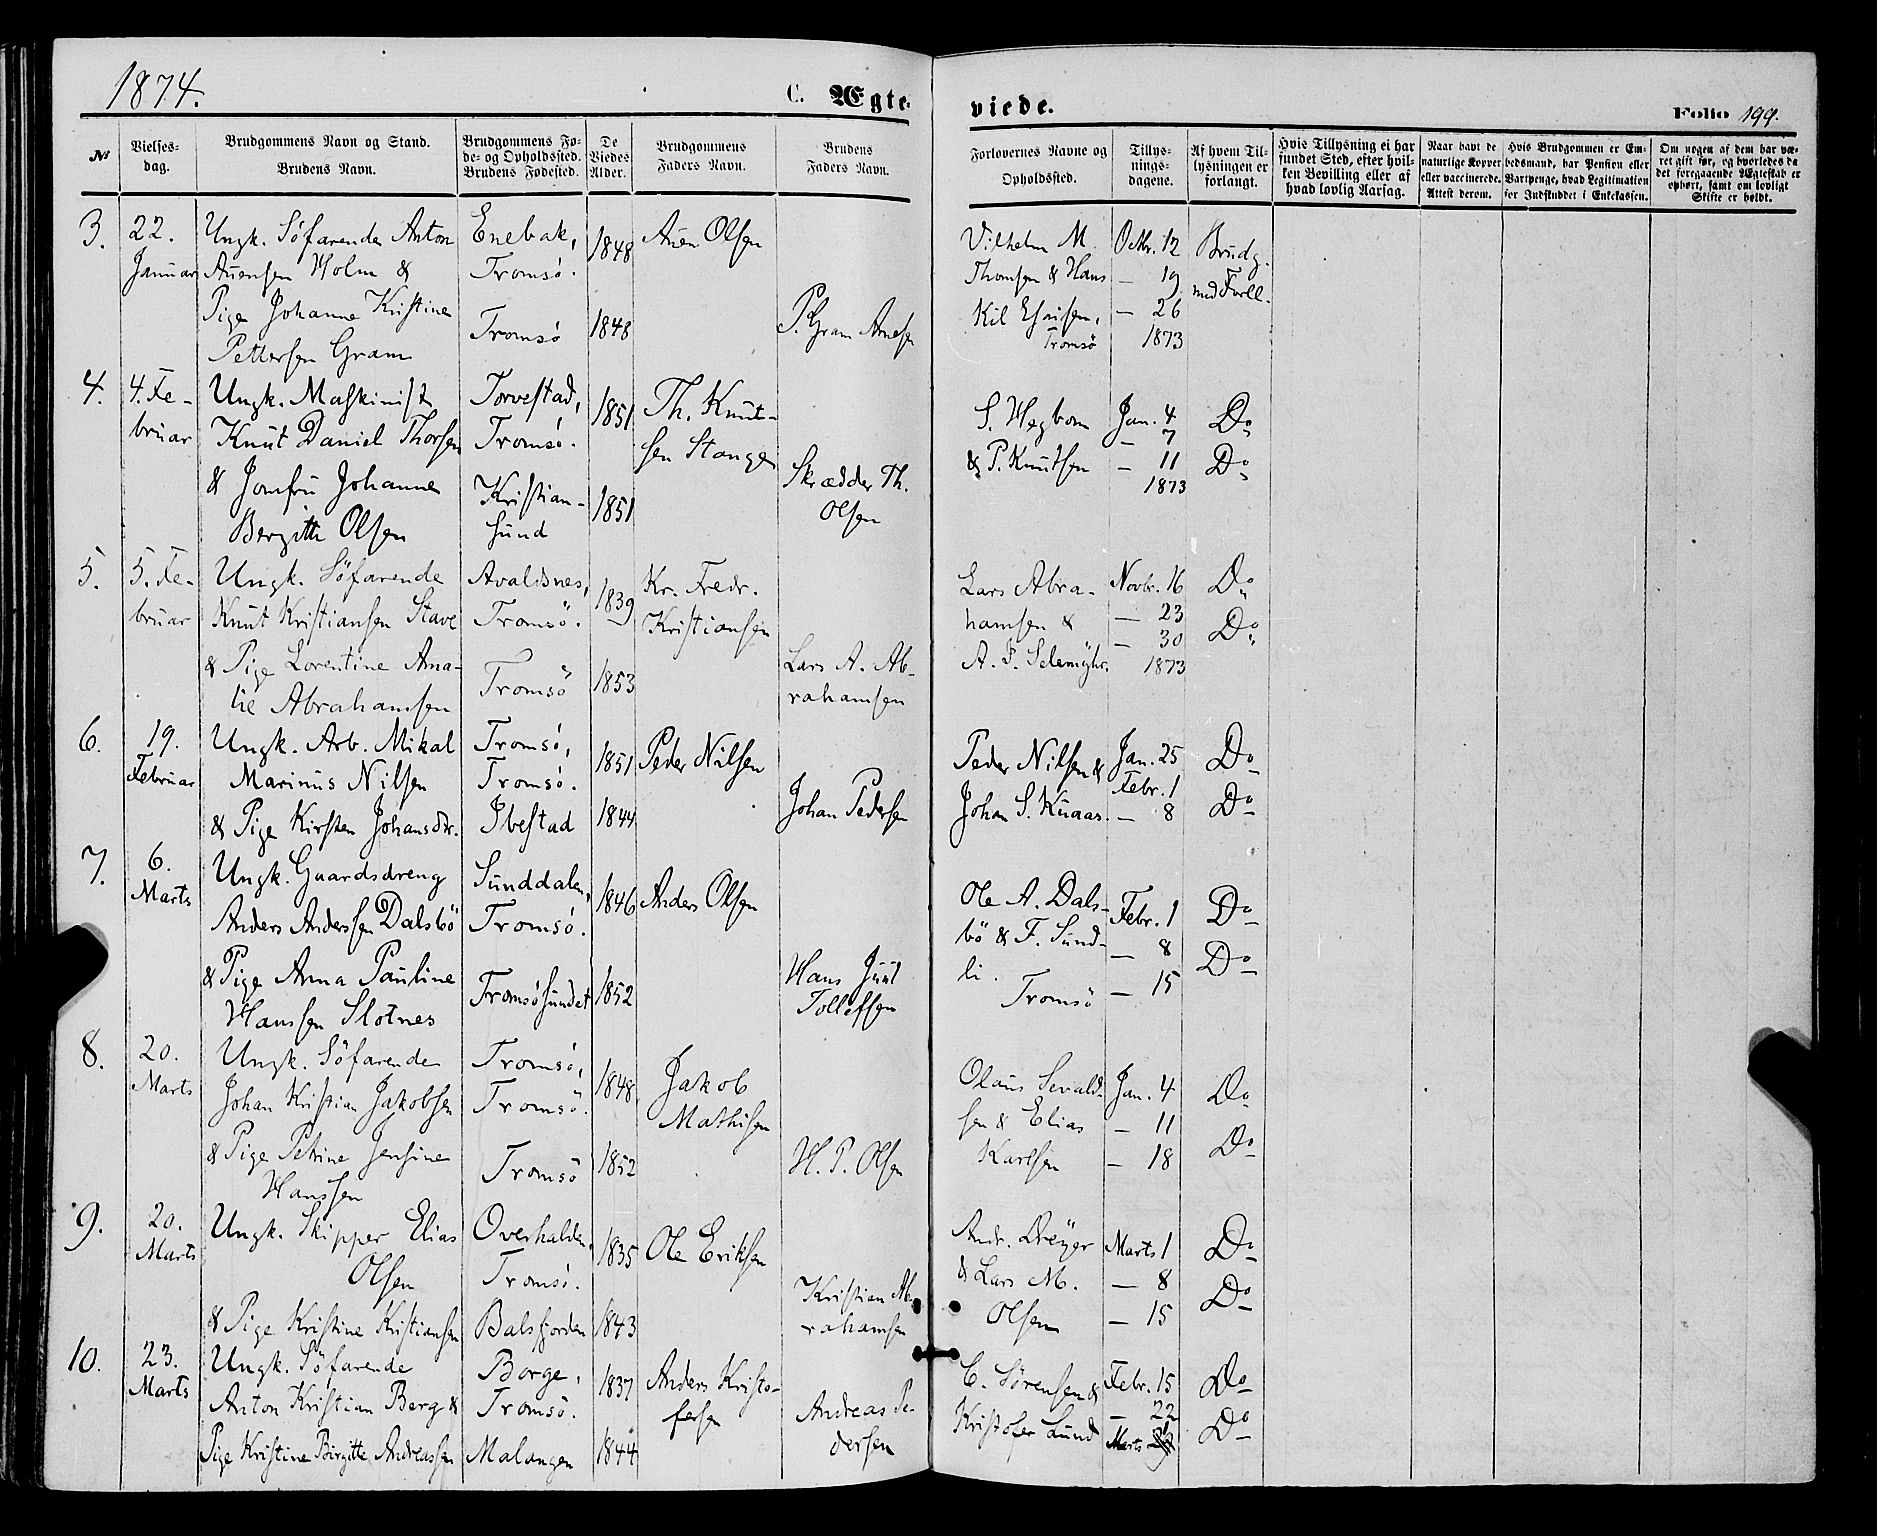 1874.
C. Ægte-
viede.
Folio 199.
№
Vielses-
dag.
Brudgommens Navn og Stand.
Brudens Navn.
Brudgommens Fø-
de- og Opholdssted.
Brudens Fødested.
De
Viedes
Alder.
Brudgommens
Faders Navn.
Brudens
Faders Navn.
Forlovernes Navne og
Opholdssted.
Tillys-
nings-
dagene.
Af hvem Til-
lysningen er
forlangt.
Hvis Tillysning ei har
fundet Sted, efter hvil-
ken Bevilling eller af
hvad lovlig Aarsag.
Naar havt de
naturlige Kopper
eller vaccinerede.
Attest derom.
Hvis Brudgommen er Em-
bedsmand, har Pension eller
Vartpenge, hvad Legitimation
for Indskuddet i Enkekassen.
Om nogen af dem har væ-
ret gift før, og hvorledes da
det foregaaende Ægteskab er
ophørt, samt om lovligt
Skifte er holdt.
3.
22.
Januar
Ungk. Söfarende Anton
Auensen Holm &
Pige Johanne Kristine
Pettersen Gram
Enebak,
Tromsö.
Tromsö
1848
1848
Auen Olsen
P. Gram Arnesen
Vilhelm M.
Thomsen & Hans
Kil Esaisen,
Tromsö
Octbr. 12
— 19
— 26
1873
Brudg.
med Forll.
4.
4. Fe-
bruar
Ungk. Maskinist
Knut Daniel Thorsen
& Jomfru Johanne
Bergitte Olsen
Torvestad,
Tromsö.
Kristian-
sund
1851
1851
Th. Knut-
sen Stange
Skrædder Th.
Olsen
S. Hegbom
& P. Knutsen
Jan. 4
— 7
— 11
1873
Do
Do
5.
5. Fe-
bruar
Ungk. Söfarende
Knut Kristiansen Stave
& Pige Lorentine Ama-
lie Abrahamsen
Avaldsnes,
Tromsö.
Tromsö
1839
1853
Kr. Fredr.
Kristiansen
Lars A. Ab-
rahamsen
Lars Abra-
hamsen &
A. P.
Novbr. 16
— 23
— 30
1873
Do
Do
6.
19.
Februar
Ungk. Arb. Mikal
Marinus Nilsen
& Pige Kirsten Johansdtr.
Tromsö,
Tromsö.
Ibestad
1851
1844
Peder Nilsen
Johan Pedersen
Peder Nilsen &
Johan S. Kuaas.
Jan. 25
Febr. 1
— 8
Do
Do
7.
6.
Marts
Ungk. Gaardsdreng
Anders Anderssen Dalsbö
& Pige Anna Pauline
Hanssen Slotnes
Sunddalen,
Tromsö.
Tromsösundet
1846
1852
Anders Olsen
Hans Juul
Tollefsen
Ole A. Dals-
bö & F. Sund-
li.
Tromsö
Febr. 1
— 8
— 15
Do
Do
8.
20.
Marts
Ungk. Söfarende
Johan Kristian Jakobsen
& Pige Petrine Jensine
Hanssen
Tromsö,
Tromsö.
Tromsö
1848
1852
Jakob
Mathisen
H. P. Olsen
Olaus Sevald-
sen & Elias
Karlsen
Jan. 4
— 11
— 18
Do
Do
9.
20.
Marts
Ungk. Skipper Elias
Olsen
& Pige Kristine Kristiansen
Overhalden,
Tromsö.
Balsfjorden
1835
1843
Ole Eriksen
Kristian Ab-
rahamsen
Andr. Dreyer
& Lars M.
Olsen
Marts 1
— 8
— 15
Do
Do
10.
23.
Marts
Ungk. Söfarende
Anton Kristian Berg &
Pige Kristine Birgitte Andreassen
Borge,
Tromsö.
Malangen
1837
1844
Anders Kristo-
fersen
Andreas Pe-
dersen
C. Sörensen &
Kristofer Lund
Febr. 15
— 22
Marts
Do
Do